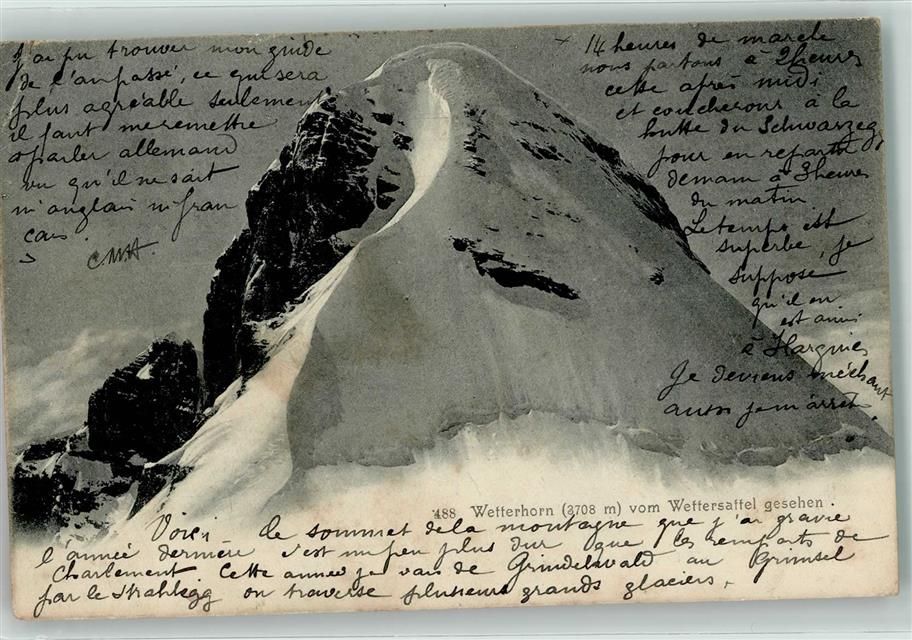 488 Wetterhorn (3708 m) vom Wettersattel gesehen.
Voici le sommet de la montagne que j'ai gravie
l'année dernière c'est un peu plus dur que les remparts de
Charlemont Cette année je vais de Grindelwald au Grimsel
par le Strahlegg on traverse plusieurs grands glaciers.
J'ai pu trouver mon guide
de l'an passé, ce qui sera
plus agréable seulement
il faut me remettre
a parler allemand
vu qu'il ne sait
ni anglais ni fran
çais.
CMH.
14 heures de marche
nous partons à 2 heures
cette après midi
et coucherons à la
hutte du Schwarzegg
pour en repartir
demain à 3 heures
du matin.
Le temps est
superbe, je
suppose
qu'il en
est ainsi
à Hargnies
Je deviens méchant
aussi je m'arrête.